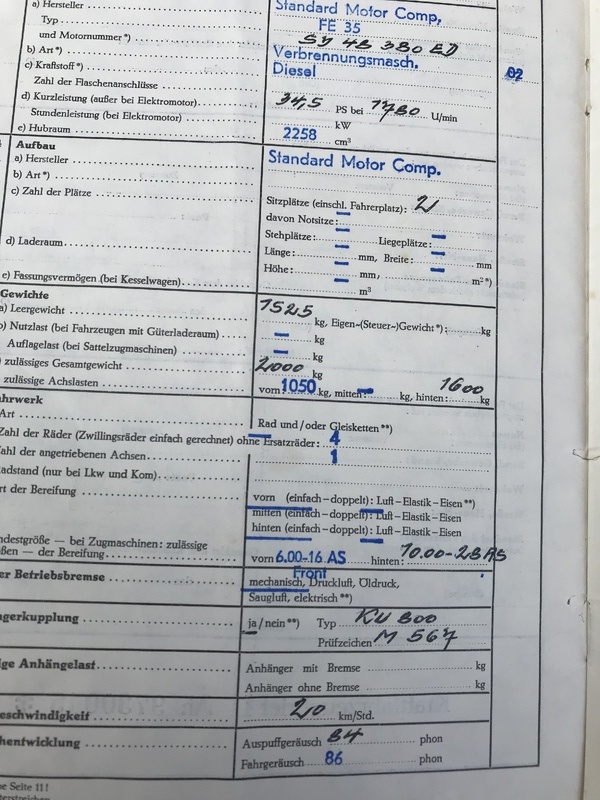 a) Hersteller Standard Motor Comp,
Typ FE 35
und Motornummer*) SY 4B 380 ED
b) Art*) Verbrennungsmasch.
c) Kraftstoff*) Diesel
Zahl der Flaschenanschlüsse
d) Kurzleistung (außer bei Elektromotor) 34,5 PS bei 1780 U/min
Stundenleistung (bei Elektromotor) kW
e) Hubraum 2258 cm³
Aufbau
a) Hersteller Standard Motor Comp.
b) Art*)
c) Zahl der Plätze Sitzplätze (einschl. Fahrerplatz): 2
davon Notsitze: –
Stehplätze: – Liegeplätze: –
d) Laderaum Länge: – mm, Breite: – mm
Höhe: – mm, m²*)
e) Fassungsvermögen (bei Kesselwagen) – m³
Gewichte
a) Leergewicht 1525 kg, Eigen-(Steuer-)Gewicht*): kg
b) Nutzlast (bei Fahrzeugen mit Güterladeraum) – kg
Auflagelast (bei Sattelzugmaschinen) – kg
zulässiges Gesamtgewicht 2000 kg
zulässige Achslasten vorn 1050 kg, mitten: – kg, hinten: 1600 kg
ahrwerk
Art Rad und/oder Gleisketten**)
Zahl der Räder (Zwillingsräder einfach gerechnet) ohne Ersatzräder: 4
ahl der angetriebenen Achsen 1
adstand (nur bei Lkw und Kom)
rt der Bereifung vorn (einfach – doppelt): Luft – Elastik – Eisen**)
mitten (einfach – doppelt): Luft – Elastik – Eisen
hinten (einfach – doppelt): Luft – Elastik – Eisen
ndestgröße — bei Zugmaschinen: zulässige
ßen — der Bereifung vorn 6.00-16 AS Front hinten: 10.00-28 AS
er Betriebsbremse mechanisch, Druckluft, Öldruck,
Saugluft, elektrisch**)
ngerkupplung ja/nein**) Typ KU 800
Prüfzeichen M 567
ige Anhängelast Anhänger mit Bremse kg
Anhänger ohne Bremse kg
eschwindigkeit 20 km/Std.
hentwicklung Auspuffgeräusch 84 phon
Fahrgeräusch 86 phon
e Seite 11!
terstreichen